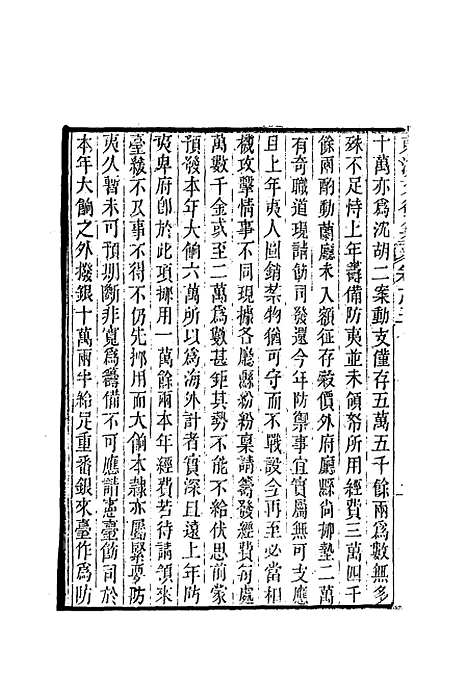 十萬亦爲沈胡二案動支僅存五萬五千餘兩爲數無多
殊不足恃上年籌備防夷並未領帑所用經費三萬四千
餘兩酌動蘭廳未入額征存穀價外府廳縣尚挪墊二萬
有奇職道現請飭司發還今年防禦事宜實屬無可支應
且上年夷人圖銷禁物猶可守而不戰設今再至必當相
機攻擊情事不同現據各廳縣紛紛稟請籌發經費每處
萬數千金或至二萬爲數甚鉅其勢不能不給伏思前蒙
預發本年大餉六萬所以爲海外計者實深且遠上年防
夷卑府卽於此項挪用一萬餘兩本年經費若待請領來
臺緩不及事不得不仍先挪用而大餉本隸亦屬緊要防
夷久暫未可預期斷非寬爲籌備不可應請憲臺飭司於
本年大餉之外撥銀十萬兩半給足重番銀來臺作爲防